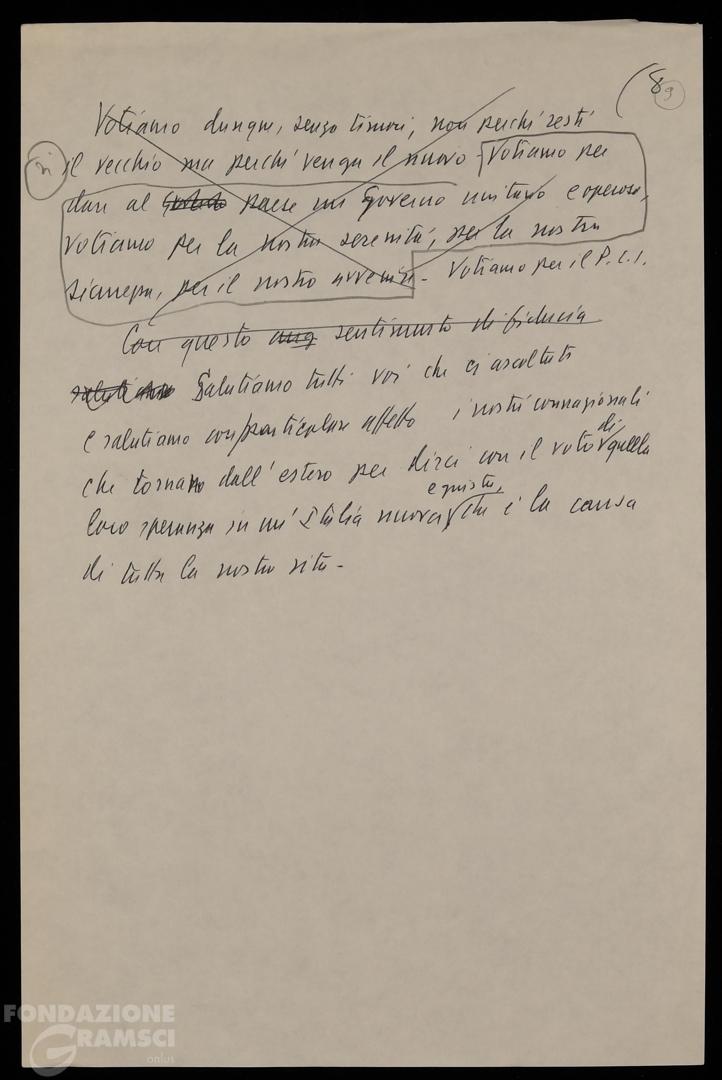 (8 9
Votiamo dunque, senza timori, non perché resti
sì il vecchio ma perché venga il nuovo - Votiamo per
dare al paese un Governo unitario e operoso,
votiamo per la nostra serenità, per la nostra
sicurezza, per il nostro avvenire - Votiamo per il P.C.I.
Con questo sentimento di fiducia
Salutiamo tutti voi che ci ascoltate
e salutiamo con particolare affetto i nostri connazionali
che tornano dall'estero per dirci con il voto di quella
loro speranza in un'Italia nuova e giusta, che è la causa
di tutta la nostra vita -
FONDAZIONE
GRAMSCI
onlus